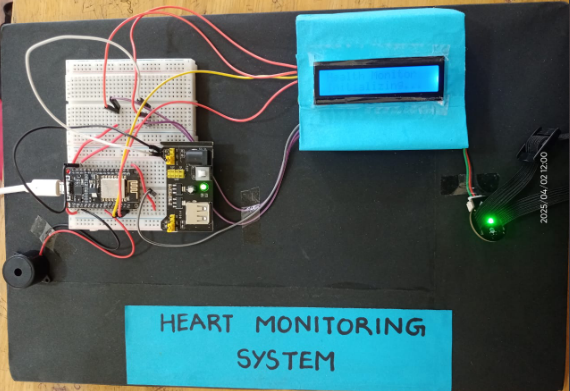 2025/04/02 12:00
HEART MONITORING
SYSTEM